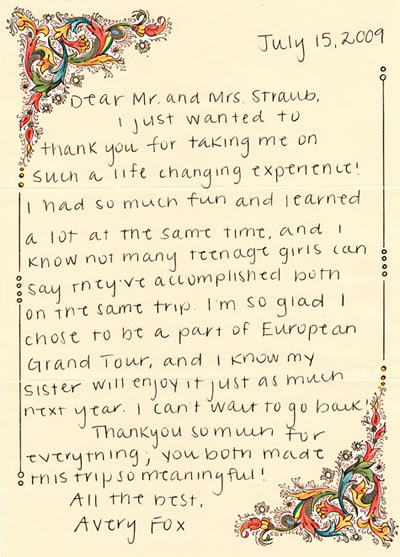 July 15, 2009
Dear Mr. and Mrs. Straub,
I just wanted to
thank you for taking me on
such a life changing experience!
I had so much fun and learned
a lot at the same time, and I
know not many teenage girls can
say they've accomplished both
on the same trip. I'm so glad I
chose to be a part of European
Grand Tour, and I know my
sister will enjoy it just as much
next year. I can't wait to go back!
Thankyou so much for
everything; you both made
this trip so meaningful!
All the best,
Avery Fox